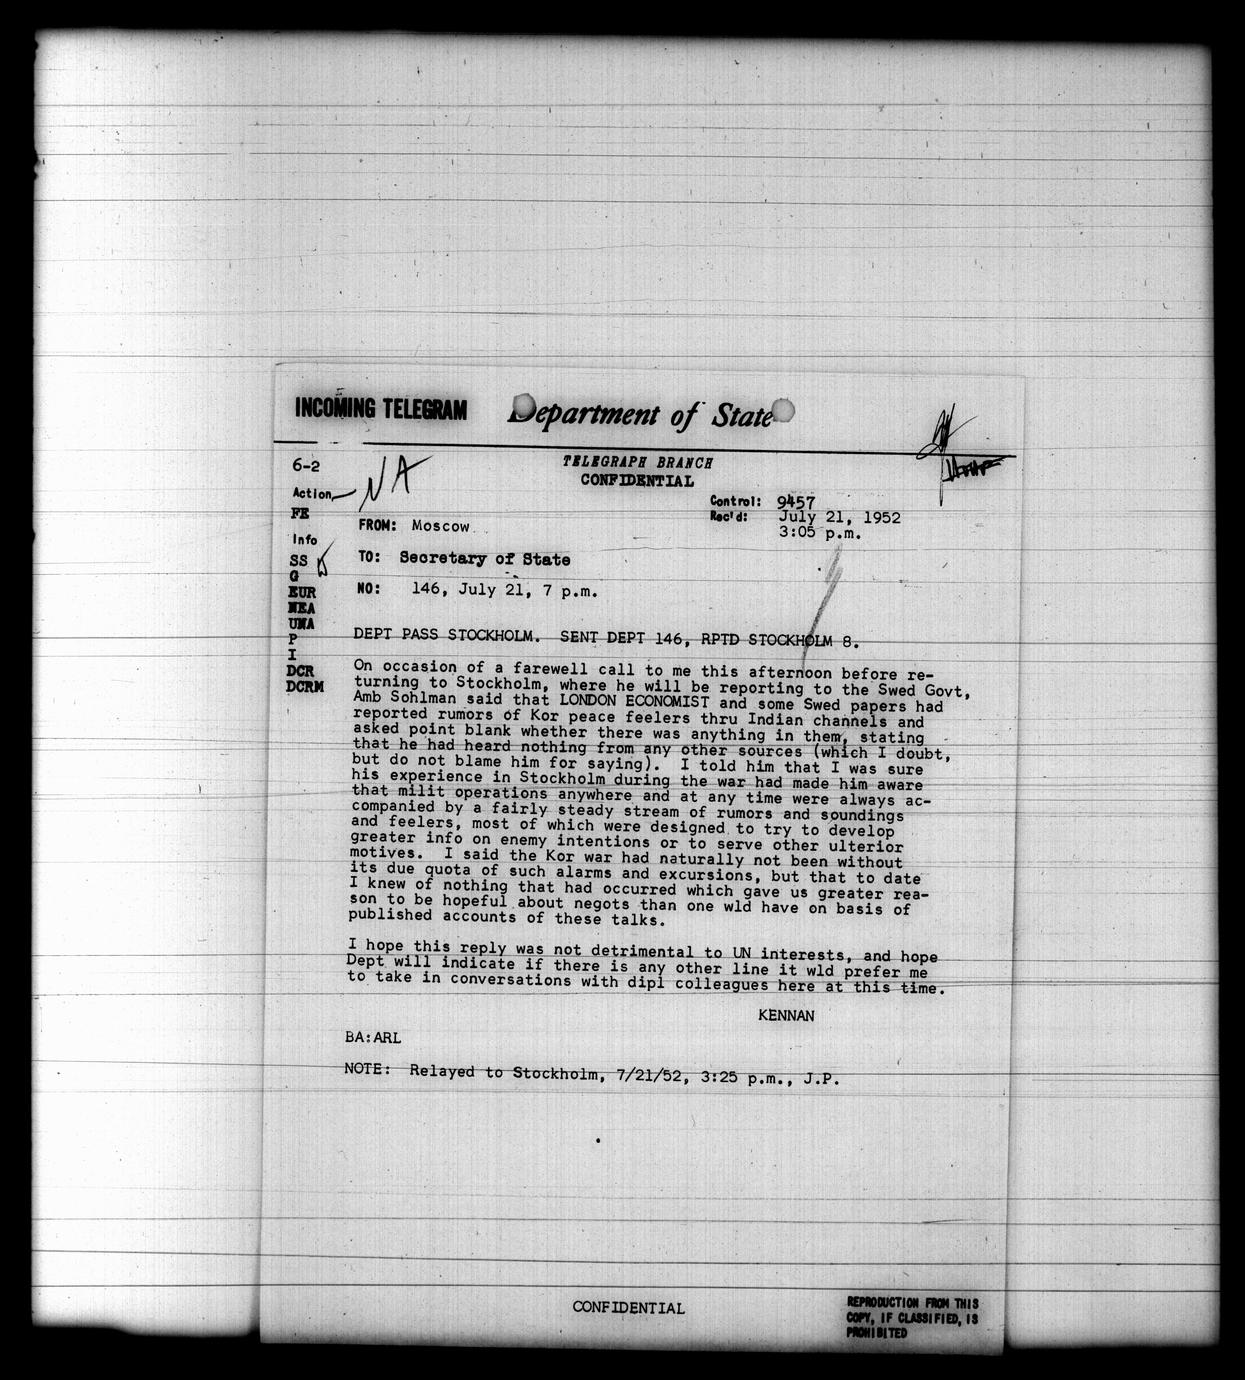 INCOMING TELEGRAM Department of State
TELEGRAPH BRANCH
CONFIDENTIAL
6-2
NA
Action
FE
Info
SS
G
EUR
NEA
UNA
P
I
DCR
DCRM
Control: 9457
Rec'd: July 21, 1952
3:05 p.m.
FROM: Moscow
TO: Secretary of State
NO: 146, July 21, 7 p.m.
DEPT PASS STOCKHOLM. SENT DEPT 146, RPTD STOCKHOLM 8.
On occasion of a farewell call to me this afternoon before re-
turning to Stockholm, where he will be reporting to the Swed Govt,
Amb Sohlman said that LONDON ECONOMIST and some Swed papers had
reported rumors of Kor peace feelers thru Indian channels and
asked point blank whether there was anything in them, stating
that he had heard nothing from any other sources (which I doubt,
but do not blame him for saying). I told him that I was sure
his experience in Stockholm during the war had made him aware
that milit operations anywhere and at any time were always ac-
companied by a fairly steady stream of rumors and soundings
and feelers, most of which were designed to try to develop
greater info on enemy intentions or to serve other ulterior
motives. I said the Kor war had naturally not been without
its due quota of such alarms and excursions, but that to date
I knew of nothing that had occurred which gave us greater rea-
son to be hopeful about negots than one wld have on basis of
published accounts of these talks.
I hope this reply was not detrimental to UN interests, and hope
Dept will indicate if there is any other line it wld prefer me
to take in conversations with dipl colleagues here at this time.
KENNAN
BA:ARL
NOTE: Relayed to Stockholm, 7/21/52, 3:25 p.m., J.P.
CONFIDENTIAL
REPRODUCTION FROM THIS
COPY, IF CLASSIFIED, IS
PROHIBITED